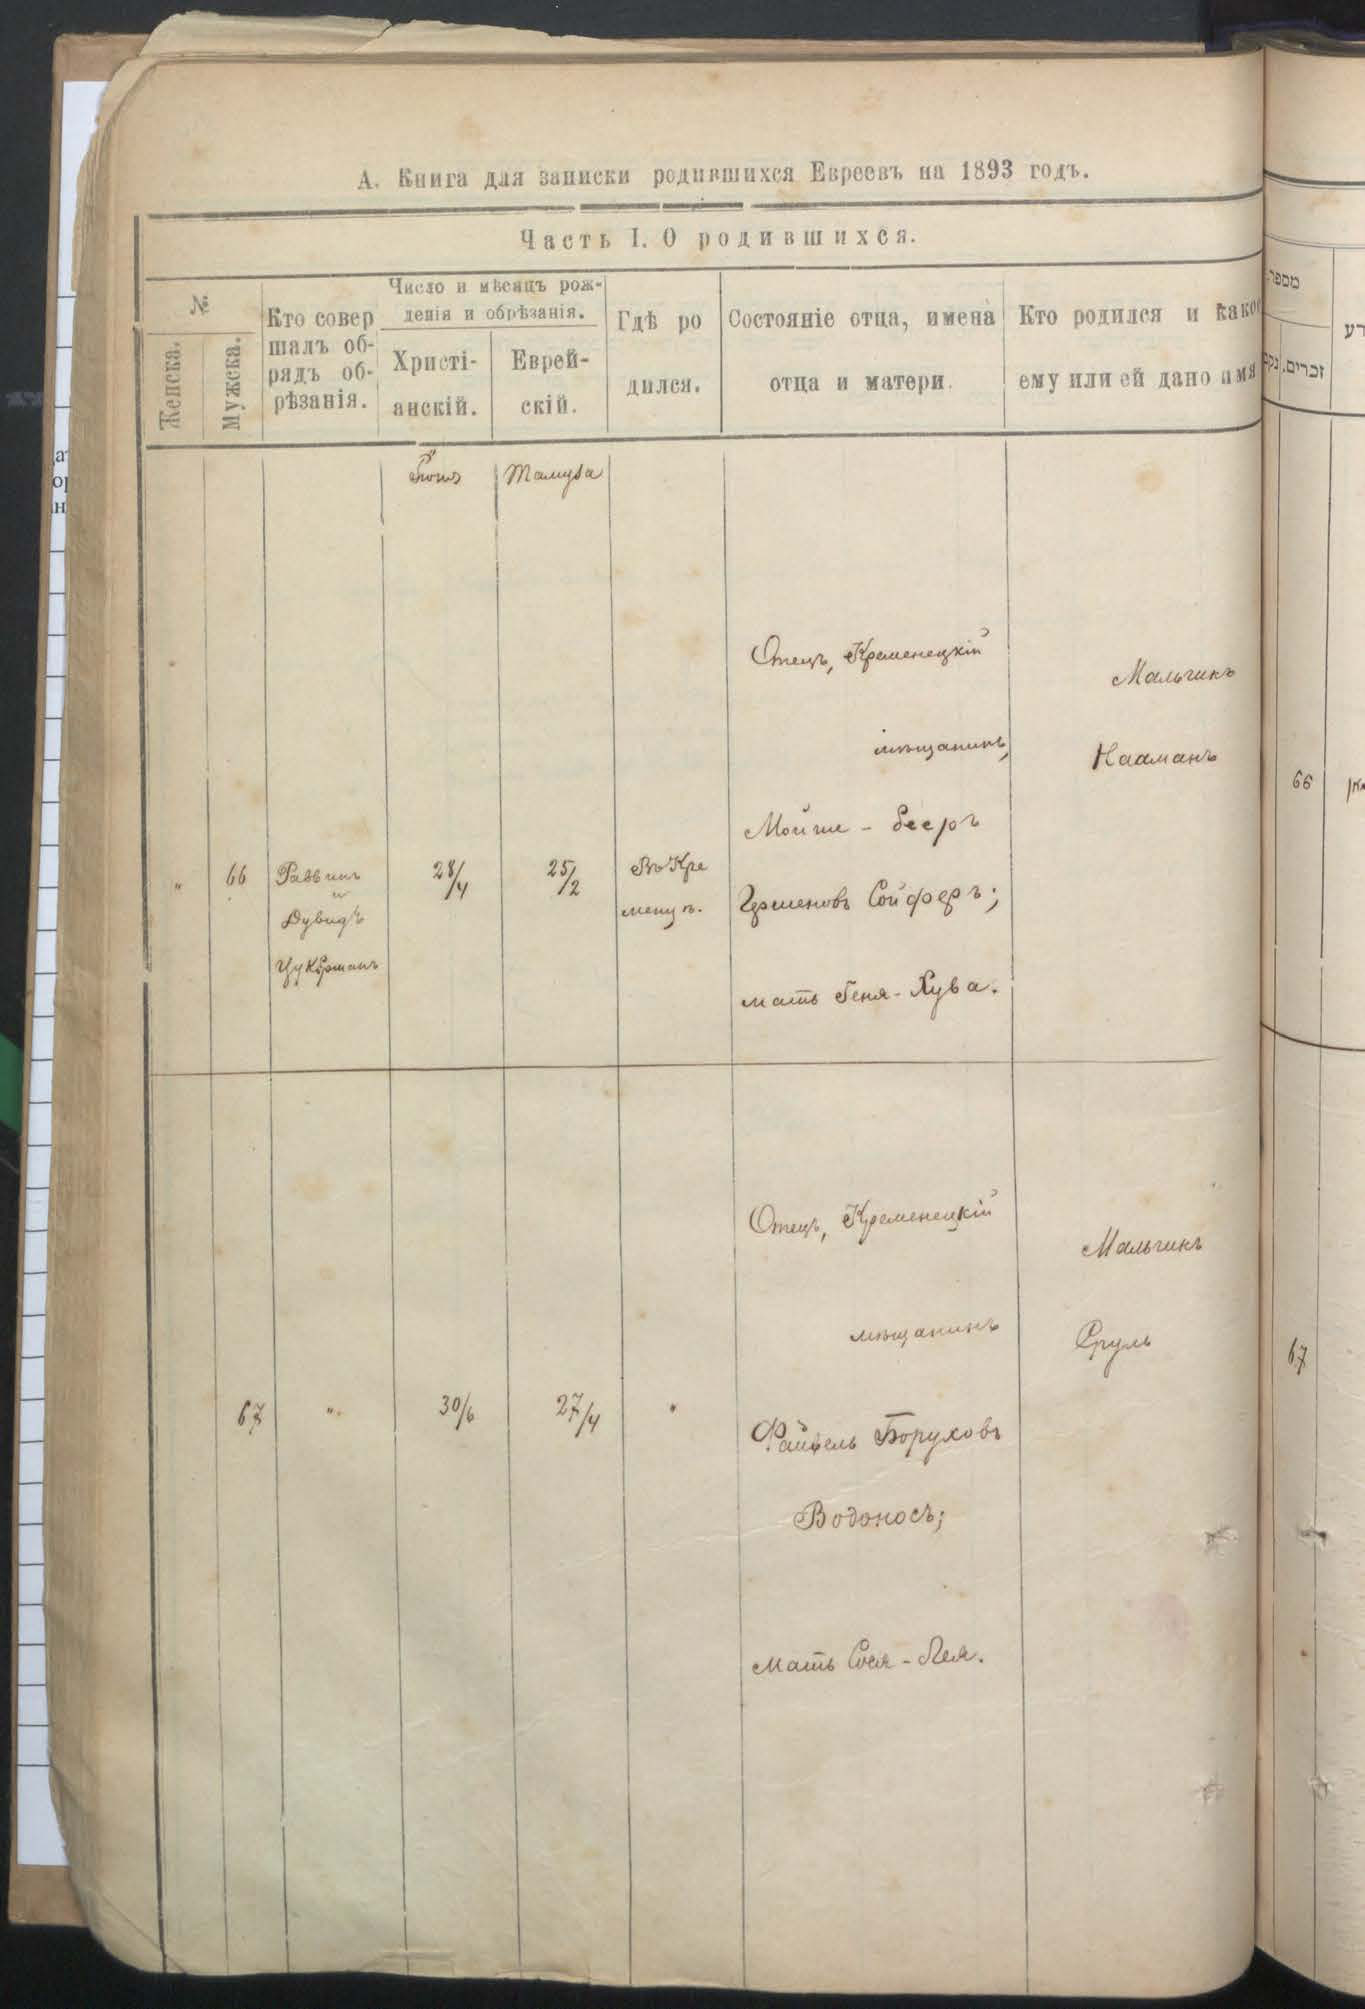 А. Книга для записки родившихся Евреевъ на 1893 годъ.
Часть I. О родившихся.
№
Женска.
Мужска.
Кто совер
шалъ об-
рядъ об-
рѣзанія.
Число и мѣсяцъ рож-
денія и обрѣзанія.
Христі-
анскій.
Еврей-
скій.
Гдѣ ро
дился.
Состояніе отца, имена
отца и матери.
Кто родился и како
ему или ей дано имя
Тамуза
"
66
Раввинъ
и
Дувидъ
Цукерманъ
28/4
25/2
Въ Кре
менцѣ.
Отецъ, Кременецкій
мѣщанинъ,
Мойше - Бееръ
Гершеновъ Сойферъ;
мать Геня - Хува.
Мальчикъ
Нааманъ
67
"
30/6
27/4
"
Отецъ, Кременецкій
мѣщанинъ
Файвель Боруховъ
Водоносъ;
мать Сося - Лея.
Мальчикъ
Сруль
מספר
זכרים.
נקב
66
67